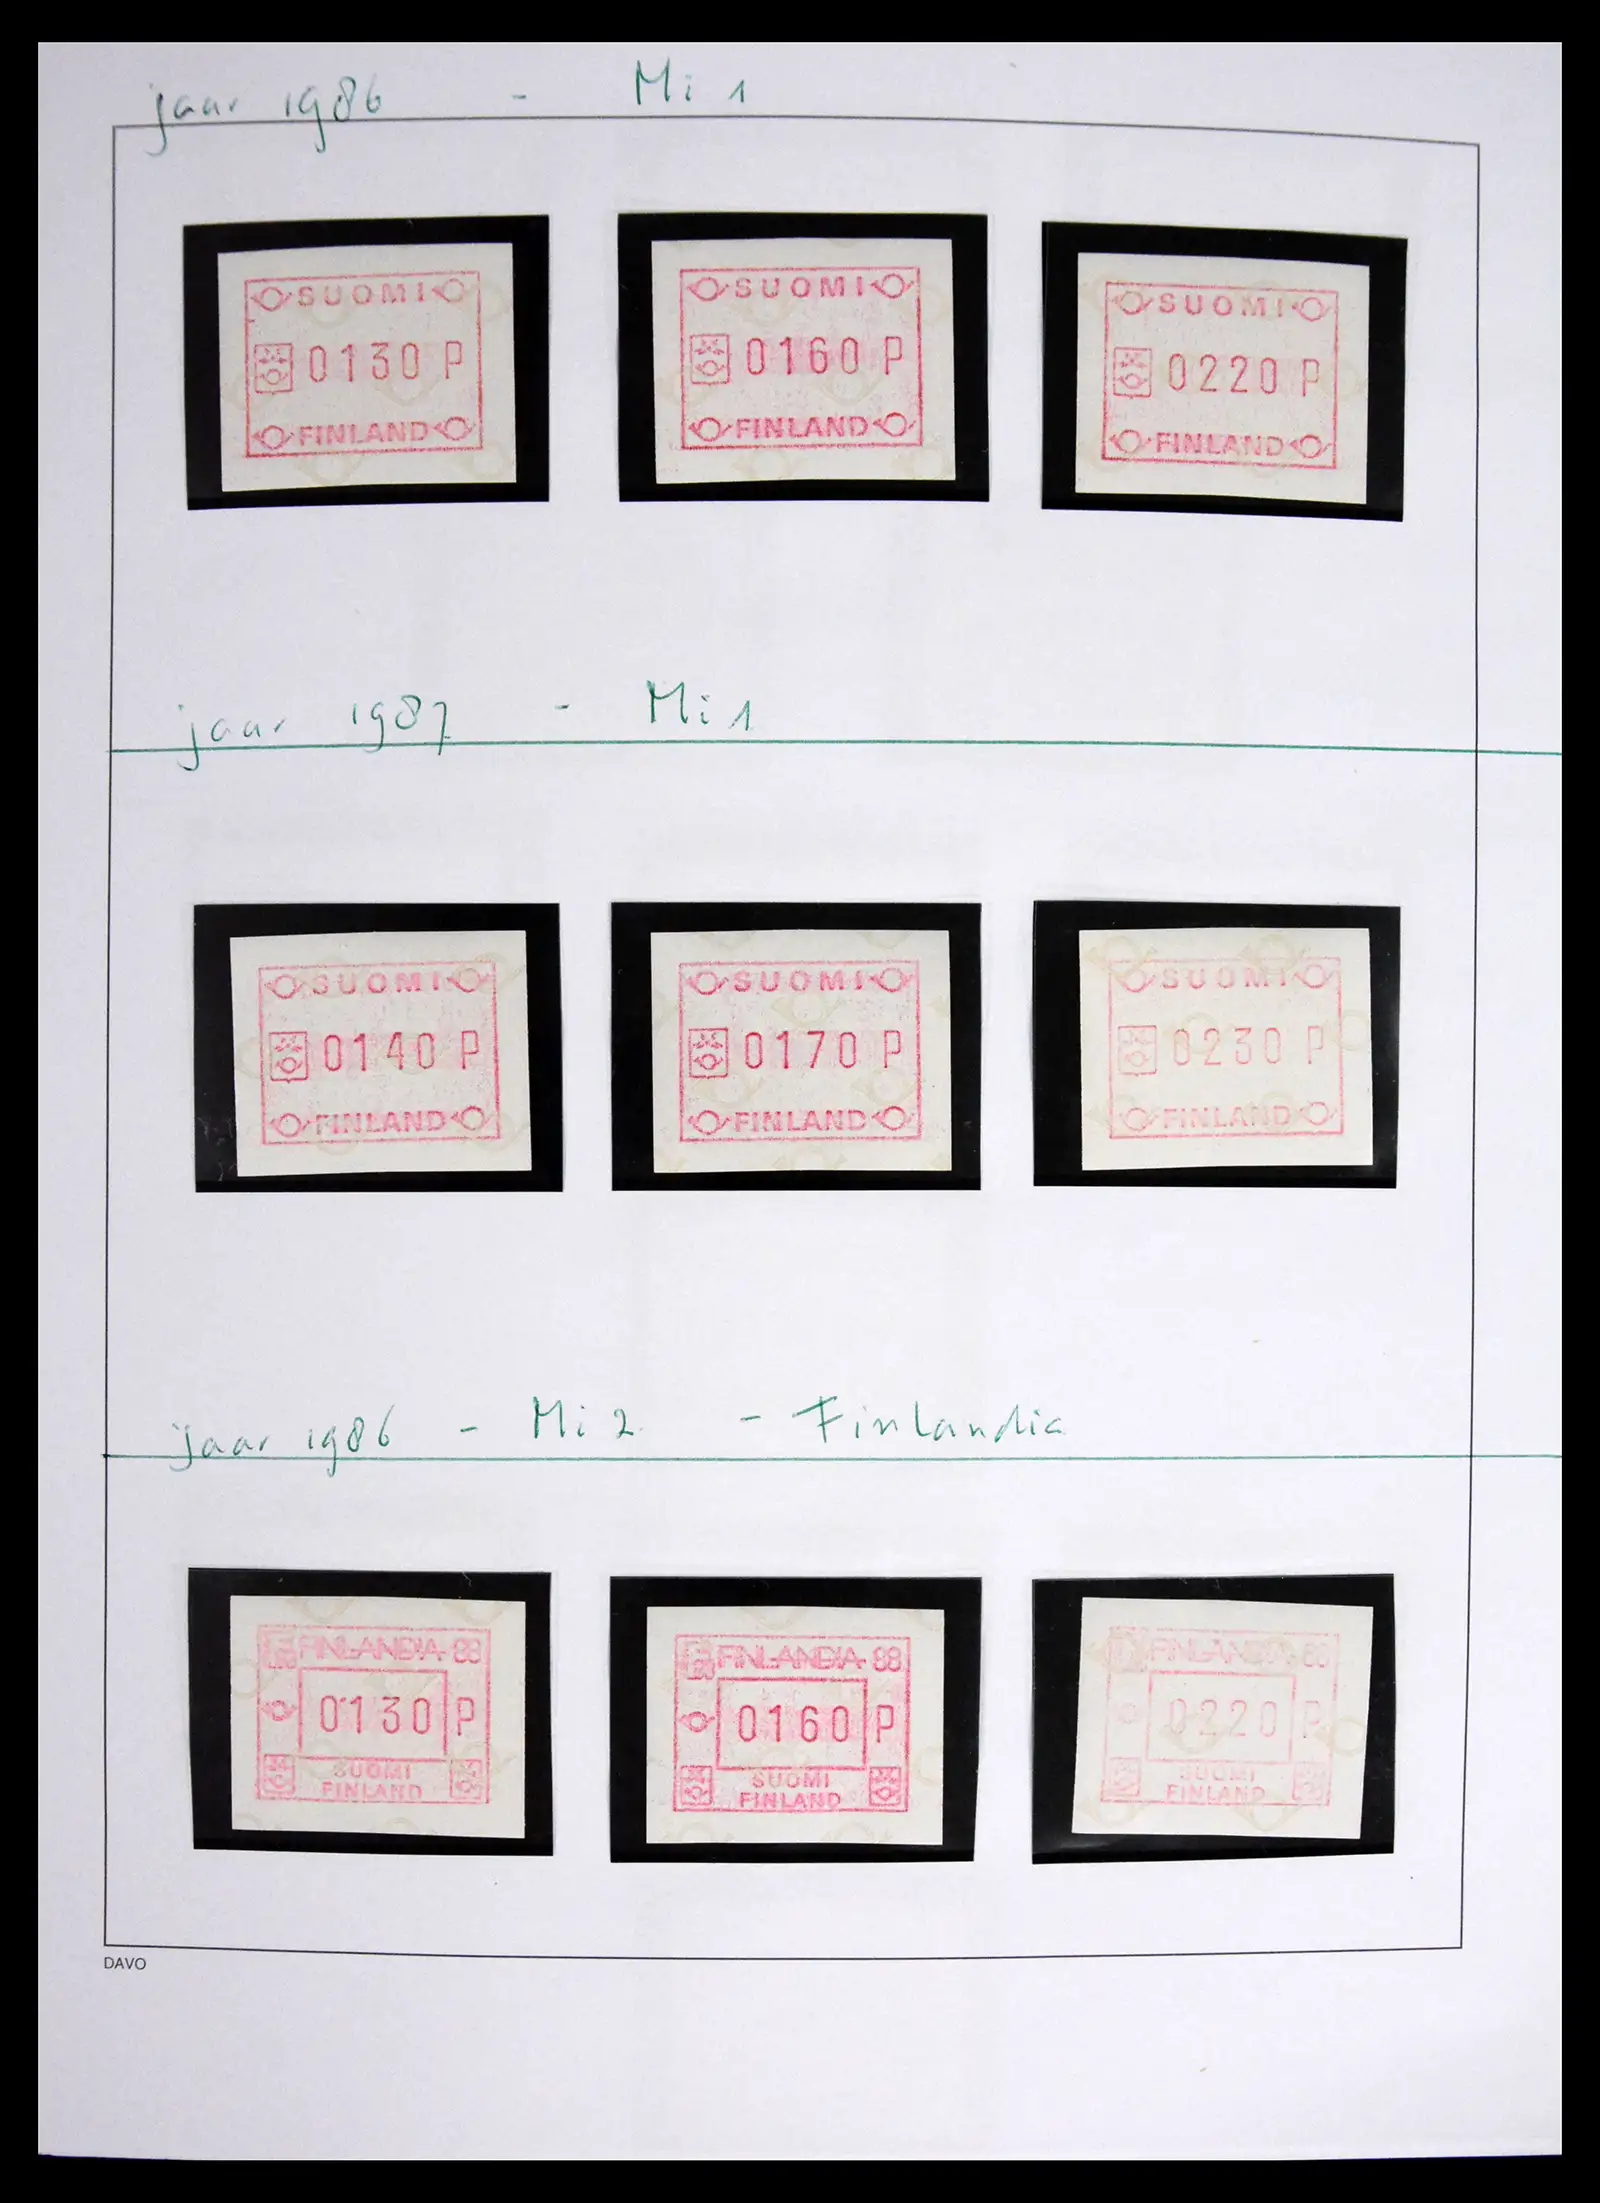 jaar 1986 - Mi 1
SUOMI
0130 P
FINLAND
SUOMI
0160 P
FINLAND
SUOMI
0220 P
FINLAND
jaar 1987 - Mi 1
SUOMI
0140 P
FINLAND
SUOMI
0170 P
FINLAND
SUOMI
0230 P
FINLAND
jaar 1986 - Mi 2 - Finlandia
FINLANDIA-88
0130 P
SUOMI
FINLAND
FINLANDIA-88
0160 P
SUOMI
FINLAND
FINLANDIA-88
0220 P
SUOMI
FINLAND
DAVO